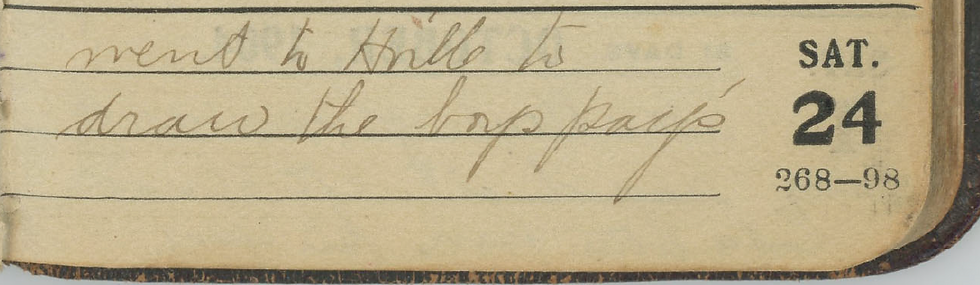 went to Hville to
draw the boys pays
SAT.
24
268—98